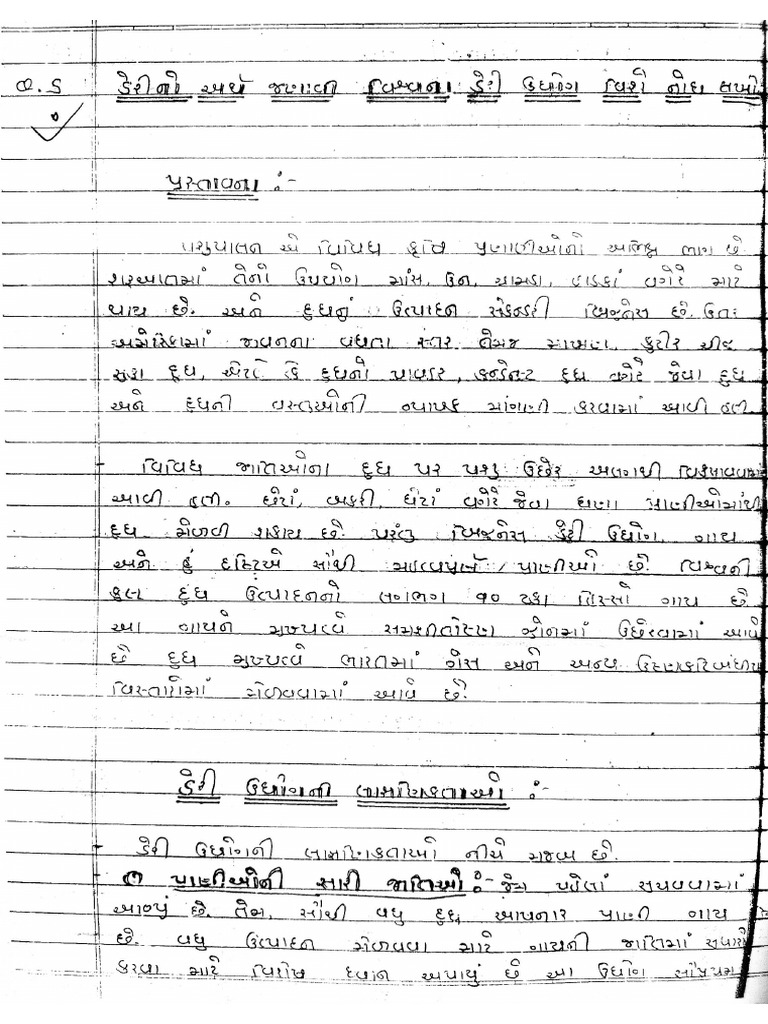 પ્ર.ડ ડેરીનો અર્થ જણાવી વિશ્વના ડેરી ઉધોગ વિશે નોધ લખો
પ્રસ્તાવના :-
પશુપાલન એ વિવિધ કૃષિ પ્રણાલીઓનો અભિન્ન ભાગ છે
શરૂઆતમાં તેનો ઉપયોગ માંસ, ઉન, ચામડા, હાડકાં વગેરે માટે
થાય છે. અને દુધનું ઉત્પાદન સેકન્ડરી બિઝનેસ છે. ઉતર
અમેરિકામાં જીવનના વધતા સ્તર તેમજ માખણ, કુટીર ચીજ
સુકા દૂધ, એટલે કે દુધનો પાવડર, કન્ડેન્સ્ટ દુધ વગેરે જેવા દુધ
અને દુધની વસ્તુઓની વ્યાપક માંગણી કરવામાં આવી હતી.
વિવિધ જાતિઓના દુધ પર પશુ ઉછેર અલગથી વિકસાવવામાં
આવી હતી. ઘેટાં, બકરી, ઘેટાં વગેરે જેવા ઘણા પ્રાણીઓમાંથી
દુધ મેળવી શકાય છે. પરંતુ બિઝનેસ ડેરી ઉધોગ, ગાય
અને હું દ્રષ્ટિએ સૌથી મહત્વપૂર્ણ પ્રાણીઓ છે. વિશ્વની
કુલ દુધ ઉત્પાદનનો લગભગ ૧૦ ટકા હિસ્સો ગાય છે
આ ગાયને મુખ્યત્વે સમશીતોષ્ણ ઝોનમાં ઉછેરવામાં આવે
છે દુધ મુખ્યત્વે ભારતમાં ભેંસ અને અન્ય ઉષ્ણકટિબંધીય
વિસ્તારોમાં મેળવવામાં આવે છે.
ડેરી ઉધોગની લાક્ષણિકતાઓ :-
ડેરી ઉધોગની લાક્ષણિકતાઓ નીચે મુજબ છે.
(૧) પ્રાણીઓની સારી જાતિઓ :- જેમ પહેલાં સુચવવામાં
આવ્યું છે. તેમ, સૌથી વધુ દુધ આપનાર પ્રાણી ગાય
છે. વધુ ઉત્પાદન મેળવવા માટે ગાયની જાતિમાં સુધારો
કરવા માટે વિશેષ ધ્યાન અપાયું છે આ ઉધોગ સૌપ્રથમ